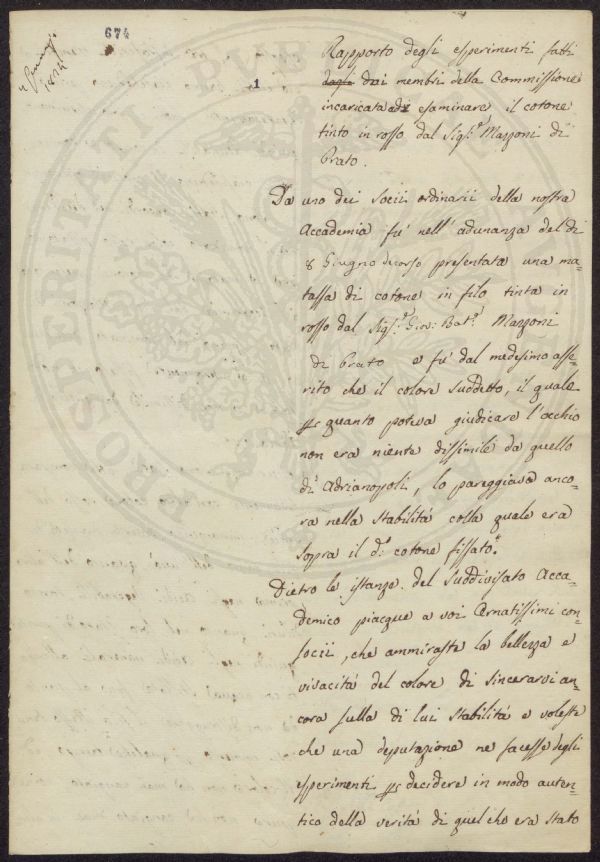 674
1
Rapporto degli esperimenti fatti
dagli dai membri della Commissione
incaricata di esaminare il cotone
tinto in rosso dal Sig.r Mazzoni di
Prato.
Da uno dei socii ordinarii della nostra
Accademia fu' nell'adunanza del dì
8 Giugno decorso presentata una ma=
tassa di cotone in filo tinta in
rosso dal Sig.r Giov: Bat.a Mazzoni
di Prato e fu' dal medesimo asse=
rito che il colore suddetto, il quale
per quanto poteva giudicare l'occhio
non era niente dissimile da quello
di Adrianopoli, lo pareggiava anco=
ra nella stabilità colla quale era
sopra il d.o cotone fissato.
Dietro le istanze del suddivisato Acca=
demico piacque a voi Ornatissimi con=
socii, che ammiraste la bellezza e
vivacità del colore di sincerarvi an=
cora sulla di lui stabilità e voleste
che una deputazione ne facesse degli
esperimenti per decidere in modo auten=
tico della verità di quel che era stato
PROSPERITATI PUB